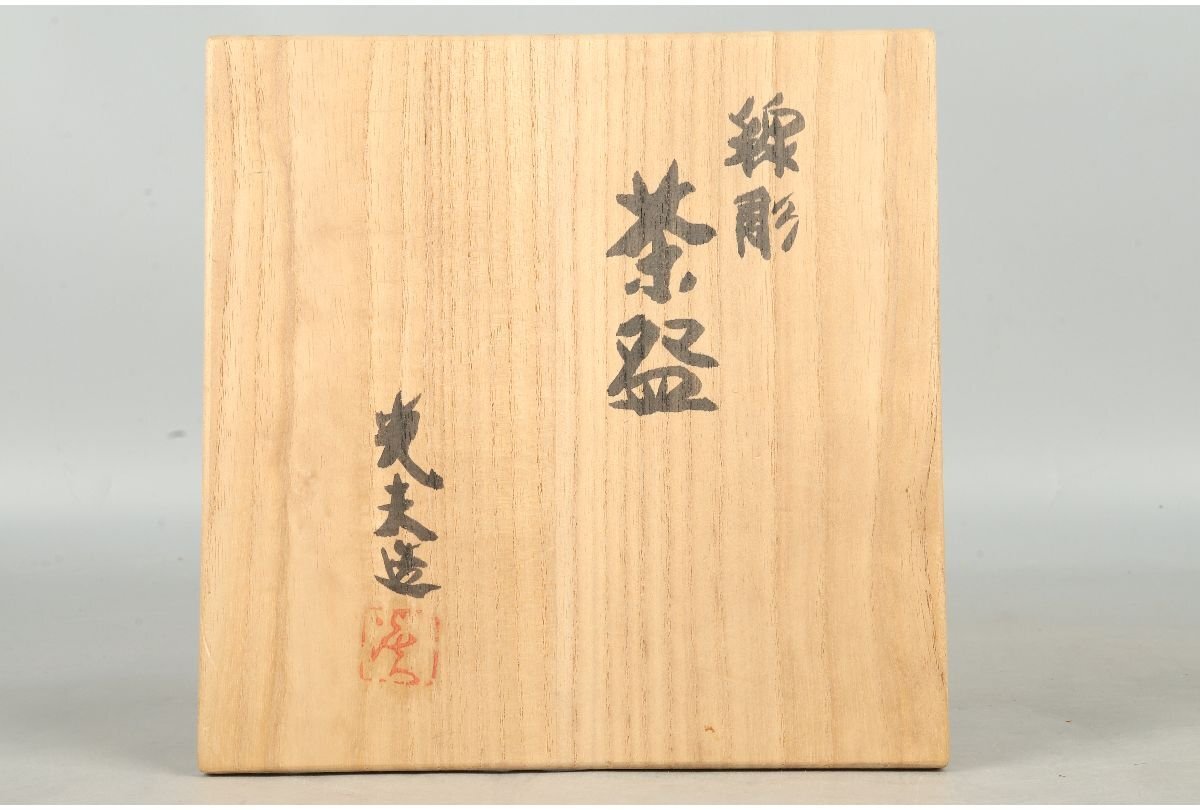 線彫
茶盌
光夫造